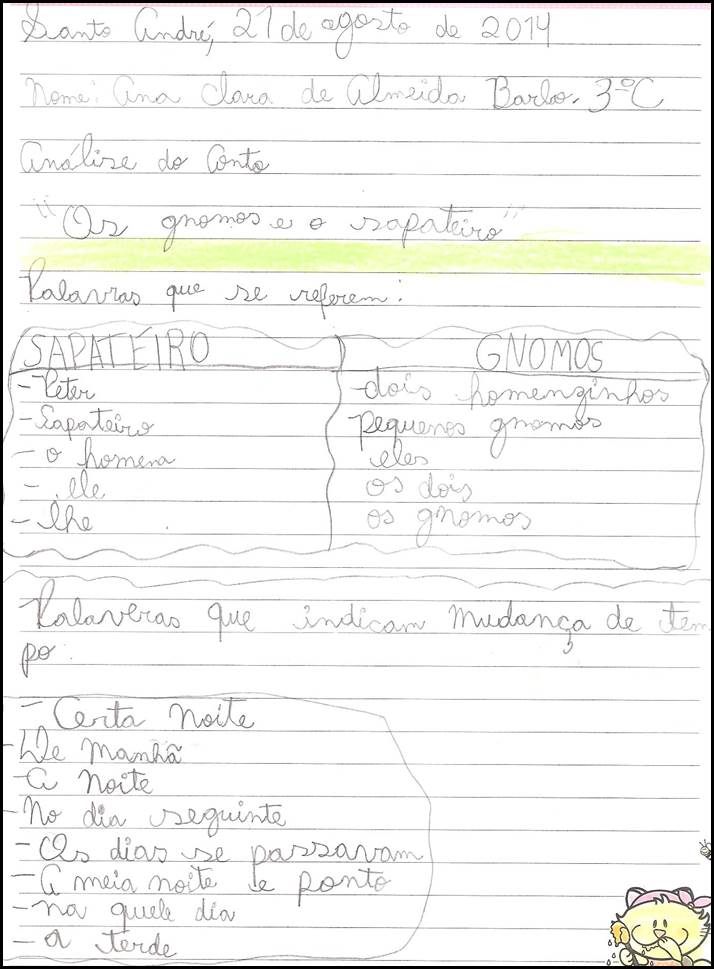 Santo André, 21 de agosto de 2014
Nome: Ana Clara de Almeida Barbo. 3ºC
Análise do Conto
"Os gnomos e o sapateiro"
Palavras que se referem:
SAPATEIRO GNOMOS
- Peter dois homenzinhos
- Sapateiro pequenos gnomos
- o homem eles
- ele os dois
- lhe os gnomos
Palaveras que indicam mudança de tem
po:
- Certa noite
- De manhã
- A noite
- No dia seguinte
- Os dias se passavam
- A meia noite de ponto
- na quele dia
- a terde